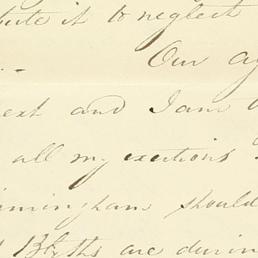 bute it to neglect
Our ag
ext and I am
all my exertions
rmingham should
13th, ths are durin